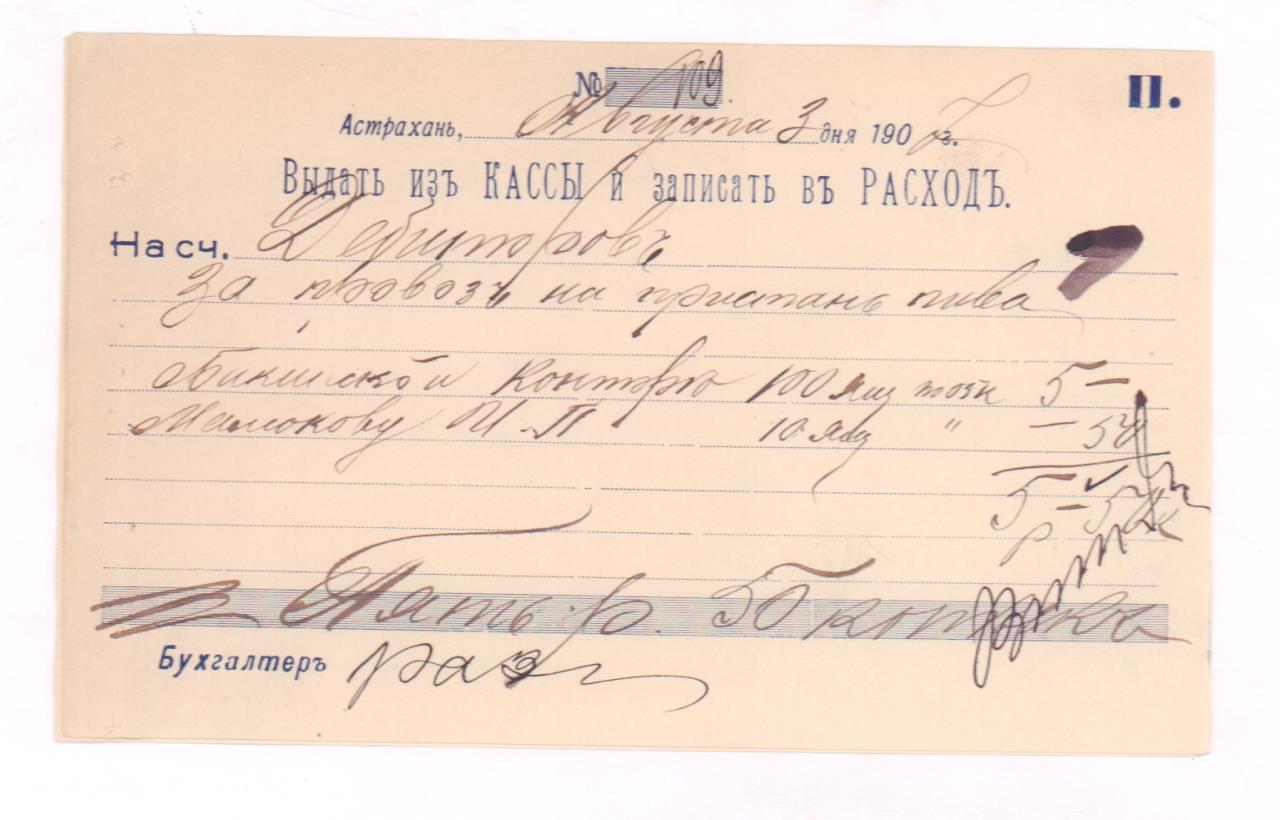 № 109.
II.
Астрахань, Августа 3 дня 190 г.
Выдать изъ КАССЫ и записать въ РАСХОДЪ.
На сч. Дебиторовъ
За провозъ на пристань пива
Бакинской Конторѣ 100 ящ 5 –
И. П 10 ящ " – 50
5 – 50
р к
Пять р. 50 копѣекъ
Бухгалтеръ